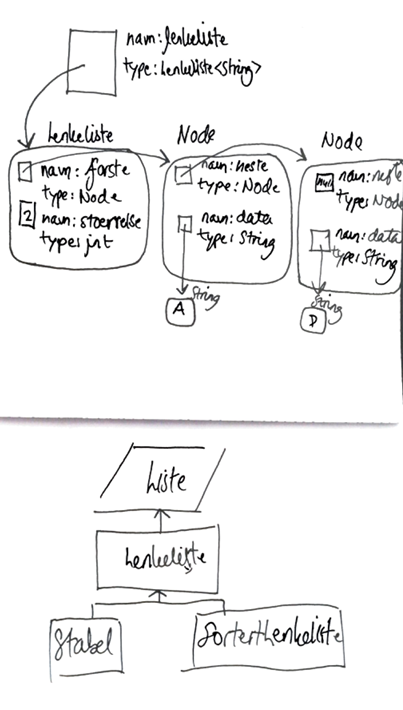 navn: lenkeliste
type: Lenkeliste<String>
Lenkeliste
Node
Node
navn: første
type: Node
2
navn: stoerrelse
type: int
navn: neste
type: Node
navn: data
type: String
null
navn: neste
type: Node
navn: data
type: String
String
A
String
D
Liste
Lenkeliste
Stabel
SortertLenkeliste